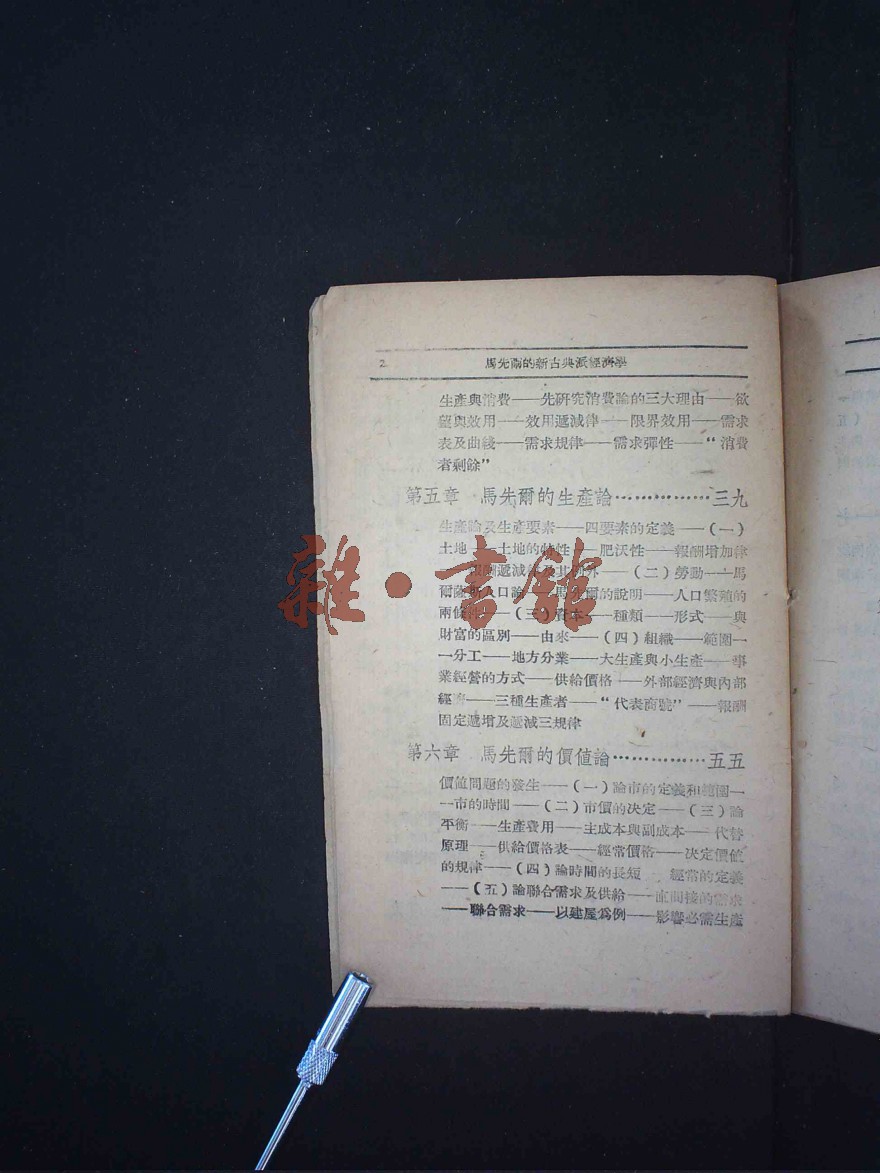 2
馬先爾的新古典派經濟學
生產與消費——先研究消費論的三大理由——欲
望與效用——效用遞減律——限界效用——需求
表及曲綫——需求規律——需求彈性——“消費
者剩餘”
第五章 馬先爾的生產論……………三九
生產論及生產要素——四要素的定義——(一)
土地——土地的特性——肥沃性——報酬增加律
——報酬遞減律及其例外——(二)勞動——馬
爾薩斯人口論——馬先爾的說明——人口繁殖的
兩條件——(三)資本——種類——形式——與
財富的區別——由來——(四)組織——範圍—
—分工——地方分業——大生產與小生產——事
業經營的方式——供給價格——外部經濟與內部
經濟——三種生產者——“代表商號”——報酬
固定遞增及遞減三規律
第六章 馬先爾的價值論……………五五
價值問題的發生——(一)論市的定義和範圍—
—市的時間——(二)市價的決定——(三)論
平衡——生產費用——主成本與副成本——代替
原理——供給價格表——經常價格——決定價值
的規律——(四)論時間的長短——經常的定義
——(五)論聯合需求及供給——直間接的需求
——聯合需求——以建屋爲例——影響必需生產
雜·書館